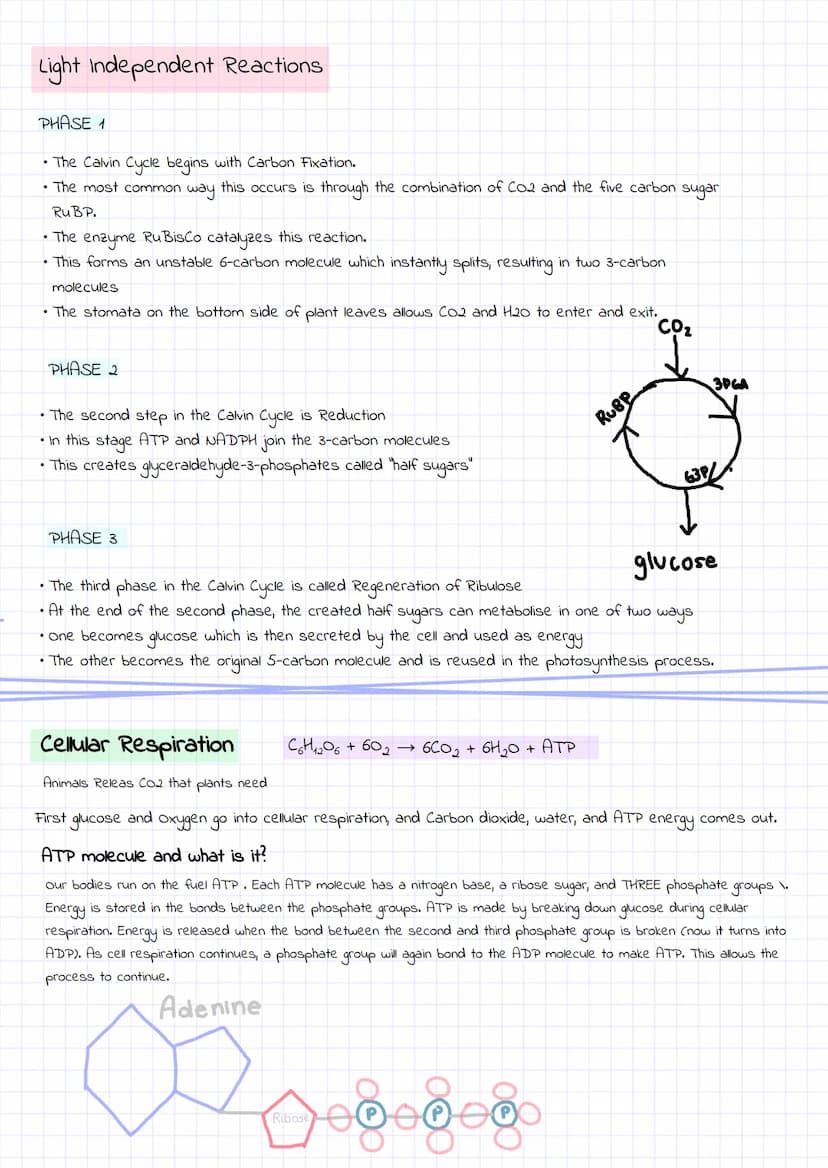 Light Independent Reactions
PHASE 1
• The Calvin Cycle begins with Carbon Fixation.
• The most common way this occurs is through the combination of CO2 and the five carbon sugar
RuBP.
• The enzyme RuBisCo catalyzes this reaction.
• This forms an unstable 6-carbon molecule which instantly splits, resulting in two 3-carbon
molecules
• The stomata on the bottom side of plant leaves allows CO2 and H2O to enter and exit.
CO₂
PHASE 2
3PGA
RuBP
• The second step in the Calvin Cycle is Reduction
• In this stage ATP and NADPH join the 3-carbon molecules
• This creates glyceraldehyde-3-phosphates called "half sugars"
G3P
PHASE 3
glucose
• The third phase in the Calvin Cycle is called Regeneration of Ribulose
• At the end of the second phase, the created half sugars can metabolise in one of two ways
• One becomes glucose which is then secreted by the cell and used as energy
• The other becomes the original 5-carbon molecule and is reused in the photosynthesis process.
Cellular Respiration
C₆H₁₂O₆ + 6O₂ → 6CO₂ + 6H₂O + ATP
Animals Releas CO2 that plants need
First glucose and Oxygen go into cellular respiration, and Carbon dioxide, water, and ATP energy comes out.
ATP molecule and what is it?
Our bodies run on the fuel ATP . Each ATP molecule has a nitrogen base, a ribose sugar, and THREE phosphate groups \.
Energy is stored in the bonds between the phosphate groups. ATP is made by breaking down glucose during cellular
respiration. Energy is released when the bond between the second and third phosphate group is broken (now it turns into
ADP). As cell respiration continues, a phosphate group will again bond to the ADP molecule to make ATP. This allows the
process to continue.
Adenine
Ribose
P P P